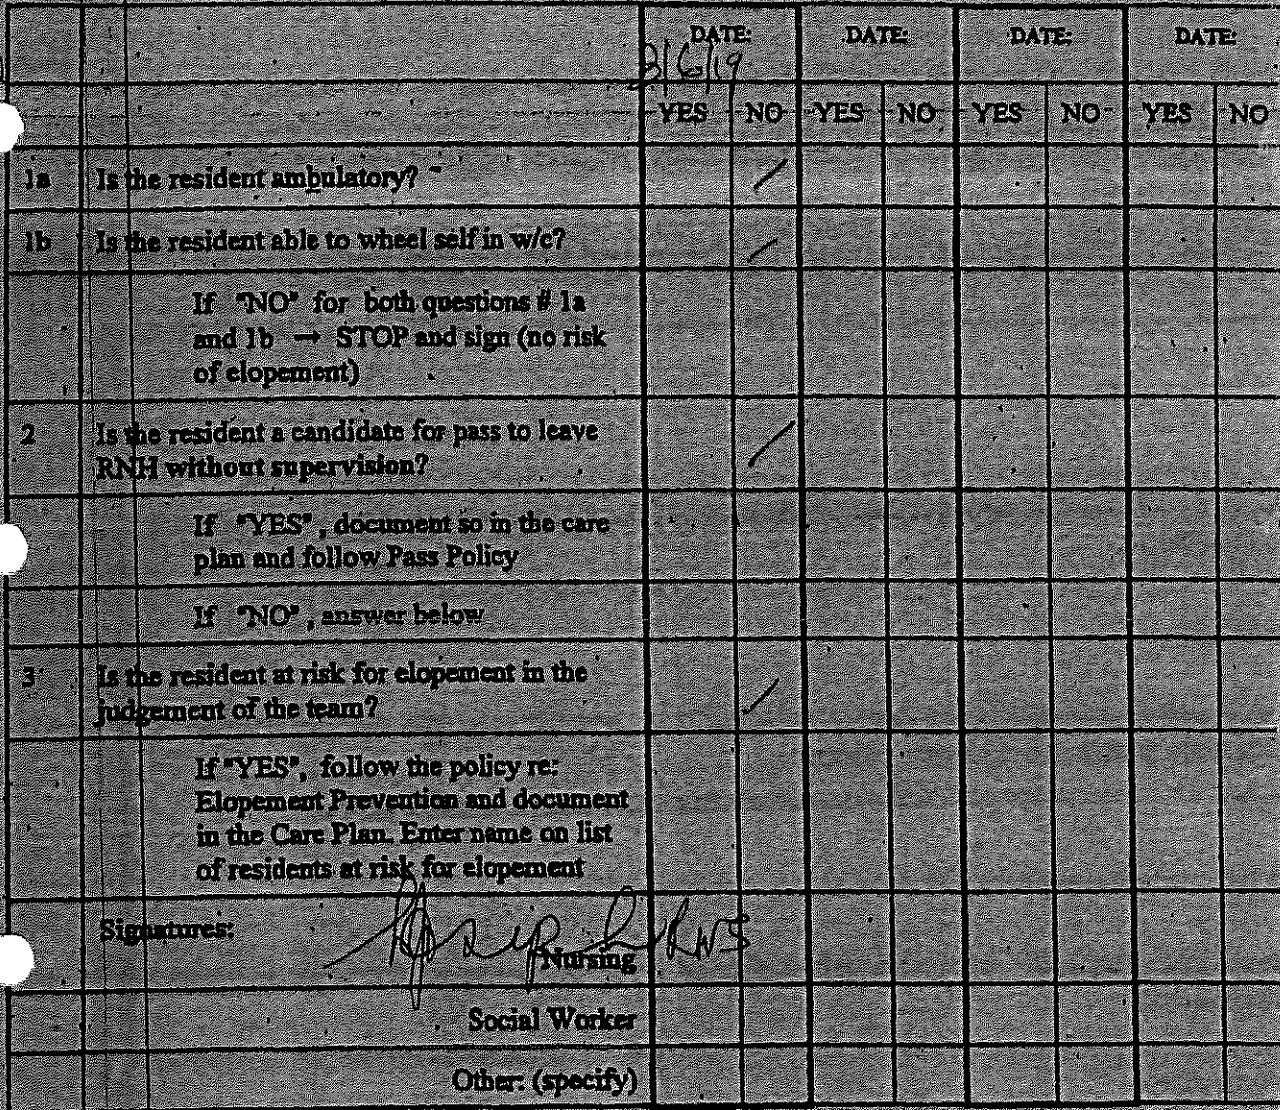 DATE: DATE: DATE: DATE:
3/6/19
YES NO YES NO YES NO YES NO
1a Is the resident ambulatory?
1b Is the resident able to wheel self in w/c?
If "NO" for both questions # 1a
and 1b → STOP and sign (no risk
of elopement)
2 Is the resident a candidate for pass to leave
RNH without supervision?
If "YES", document so in the care
plan and follow Pass Policy
If "NO", answer below
3 Is the resident at risk for elopement in the
judgement of the team?
If "YES", follow the policy re:
Elopement Prevention and document
in the Care Plan. Enter name on list
of residents at risk for elopement
Signatures:
RNS
Nursing
Social Worker
Other: (specify)